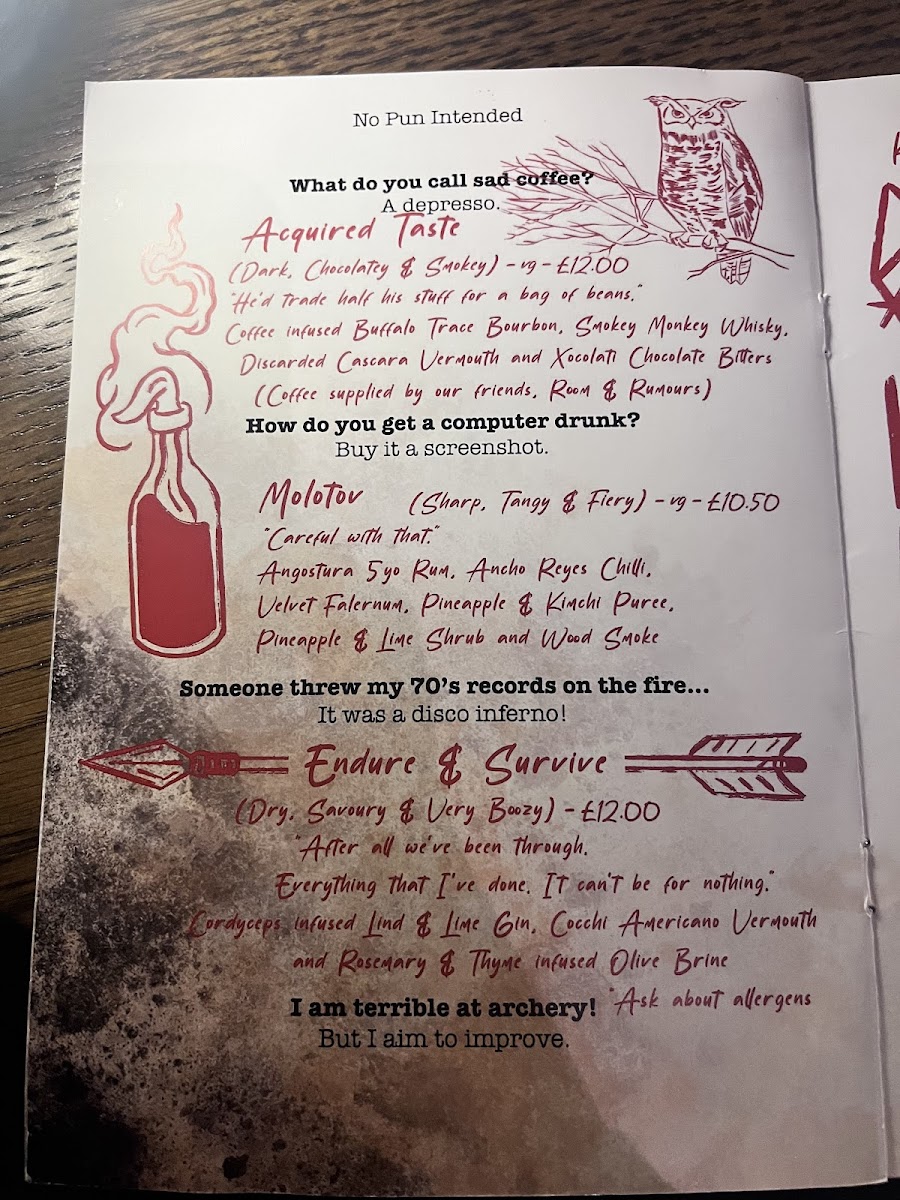 No Pun Intended
What do you call sad coffee?
A depresso.
Acquired Taste
(Dark, Chocolatey & Smokey) - vg - £12.00
"He'd trade half his stuff for a bag of beans."
Coffee infused Buffalo Trace Bourbon, Smokey Monkey Whisky,
Discarded Cascara Vermouth and Xocolatl Chocolate Bitters
(Coffee supplied by our friends, Room & Rumours)
How do you get a computer drunk?
Buy it a screenshot.
Molotov (Sharp, Tangy & Fiery) - vg - £10.50
"Careful with that."
Angostura 5yo Rum, Ancho Reyes Chilli,
Velvet Falernum, Pineapple & Kimchi Puree,
Pineapple & Lime Shrub and Wood Smoke
Someone threw my 70's records on the fire...
It was a disco inferno!
Endure & Survive
(Dry, Savoury & Very Boozy) - £12.00
"After all we've been through.
Everything that I've done. It can't be for nothing."
Cordyceps infused Lind & Lime Gin, Cocchi Americano Vermouth
and Rosemary & Thyme infused Olive Brine
"Ask about allergens
I am terrible at archery!
But I aim to improve.